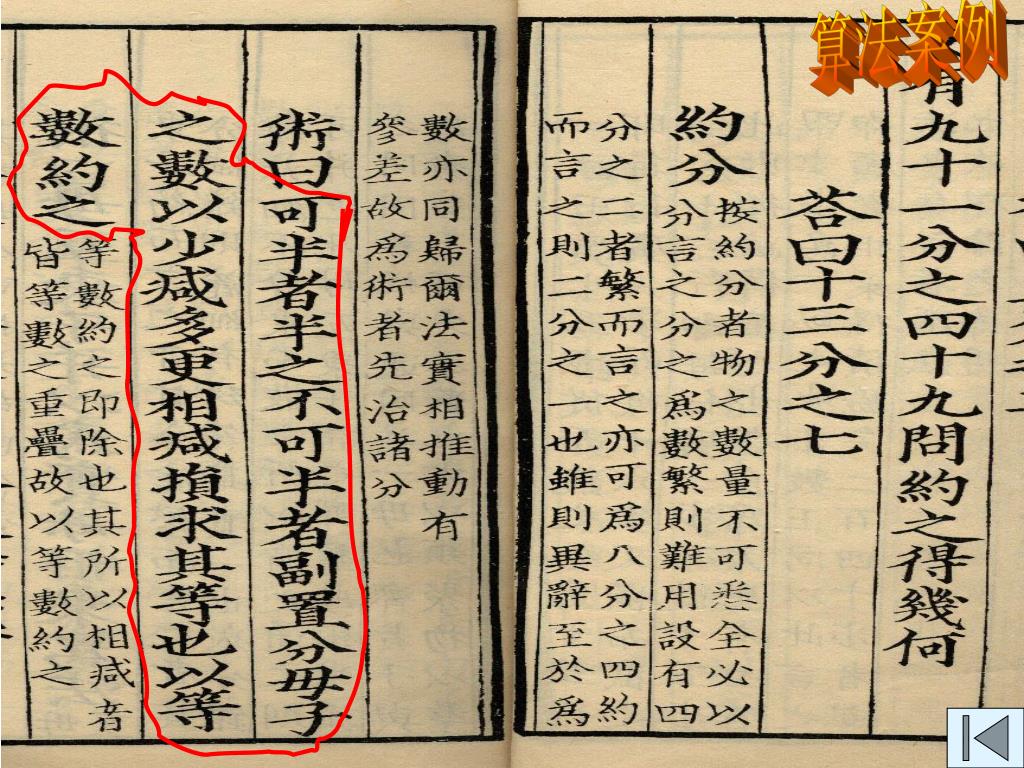 算法案例
有九十一分之四十九問約之得幾何
荅曰十三分之七
約分
按約分者物之數量不可悉全必以
分言之分之爲數繁則難用設有四
分之二者繁而言之亦可爲八分之四約
而言之則二分之一也雖則異辭至於爲
數亦同歸爾法實相推動有
參差故爲術者先治諸分
術曰可半者半之不可半者副置分母子
之數以少减多更相减損求其等也以等
數約之
等數約之即除也其所以相减者
皆等數之重疊故以等數約之